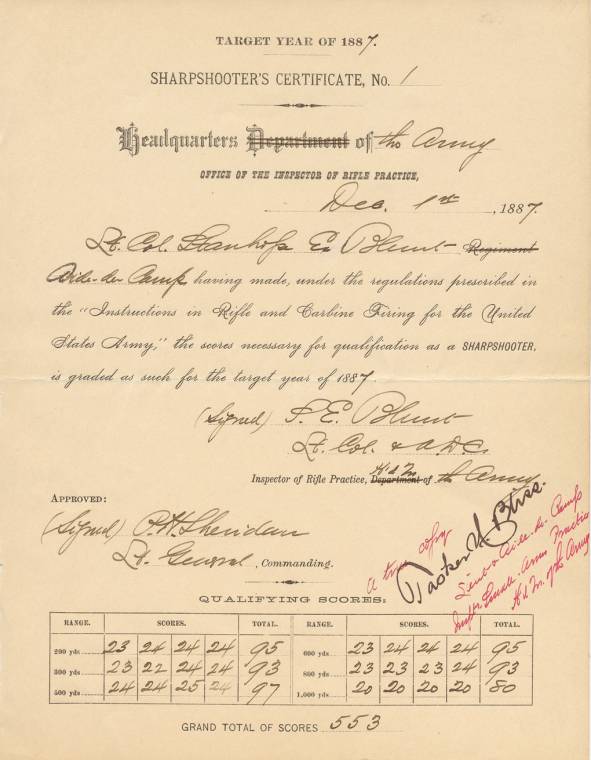 TARGET YEAR OF 1887.
SHARPSHOOTER'S CERTIFICATE, No. 1
Headquarters Department of the Army
OFFICE OF THE INSPECTOR OF RIFLE PRACTICE,
Dec. 1st, 1887.
Lt. Col. Stanhope E. Blunt Regiment
Aide-de Camp having made, under the regulations prescribed in
the "Instructions in Rifle and Carbine Firing for the United
States Army," the scores necessary for qualification as a SHARPSHOOTER,
is graded as such for the target year of 1887.
(Signed) S. E. Blunt
Lt. Col. & A.D.C.
Inspector of Rifle Practice, Department of Hd Qrs. the Army
APPROVED:
(Signed) P. H. Sheridan
Lt. General, Commanding.
A true copy
Tasker H. Bliss.
Lieut & Aide-de-Camp
Inspr Small Arms Practice
Hd Qr. of the Army
QUALIFYING SCORES:
RANGE. SCORES. TOTAL. RANGE. SCORES. TOTAL.
200 yds 23 24 24 24 95 600 yds 23 24 24 24 95
300 yds 23 22 24 24 93 800 yds 23 23 23 24 93
500 yds 24 24 25 24 97 1,000 yds 20 20 20 20 80
GRAND TOTAL OF SCORES 553